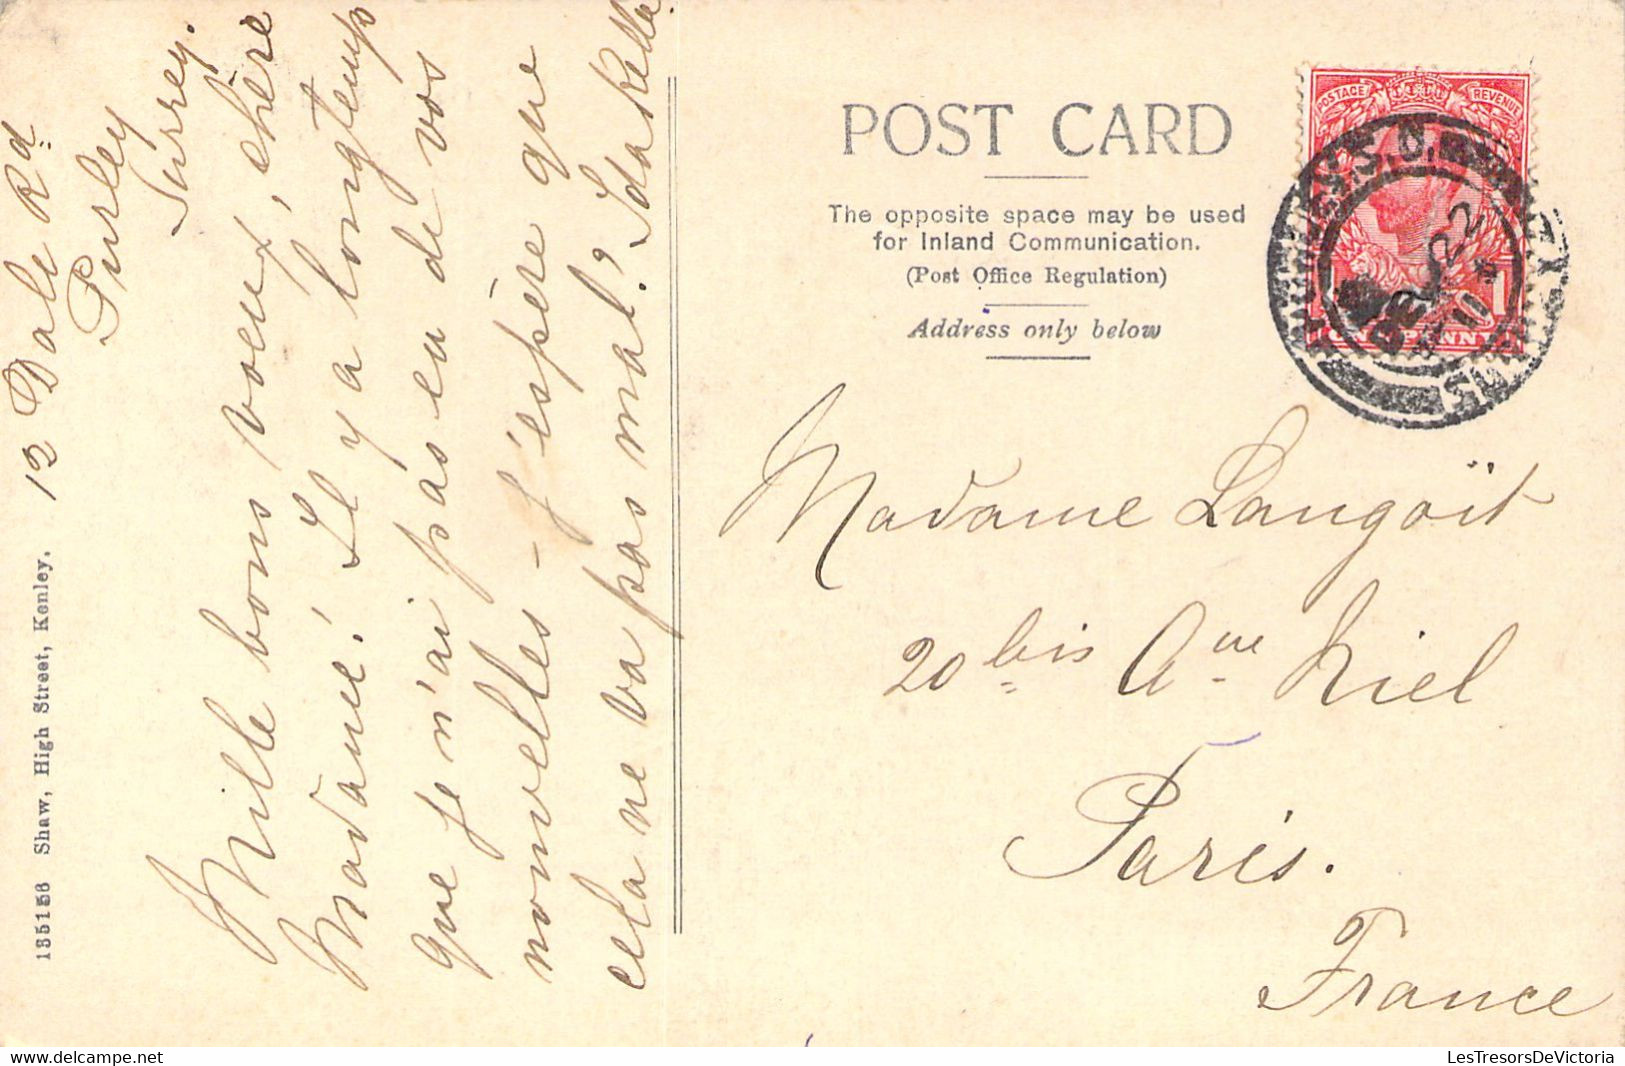 12 Dale Rd
Purley
Surrey.
Mille bons voeux, chère
Madame! Il y a longtemps
que je n'ai pas eu de vos
nouvelles - j'espère que
cela ne va pas mal?
135156 Shaw, High Street, Kenley.
POST CARD
The opposite space may be used
for Inland Communication.
(Post Office Regulation)
Address only below
POSTAGE REVENUE
S.O.
DE 22
11
Madame Langoit
20 bis Aue Niel
Paris.
France
LesTresorsDeVictoria